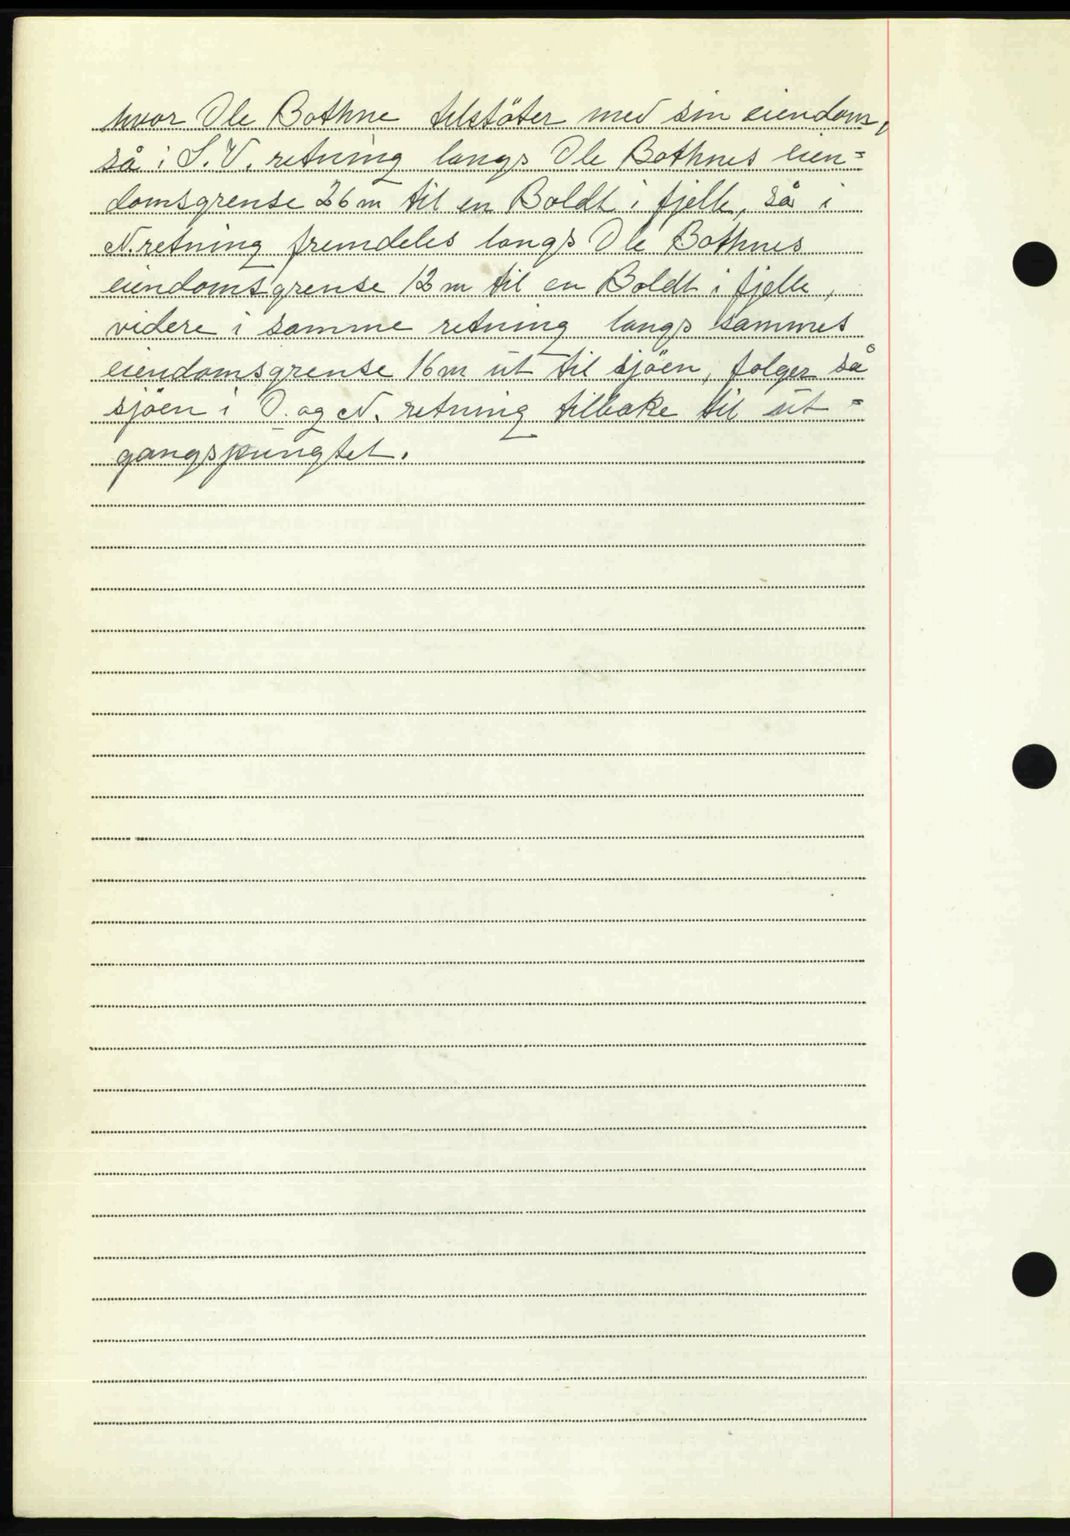 hvor Ole Bothne tilstöter med sin eiendom,
så i S.V. retning langs Ole Bothnes eien=
domsgrense 26 m til en Boldt i fjelle, så i
N. retning fremdeles langs Ole Bothnes
eiendomsgrense 12 m til en Boldt i fjelle,
videre i samme retning langs sammes
eiendomsgrense 16 m ut til sjöen, følger så
sjöen i O. og N. retning tilbake til ut=
gangspungtet.